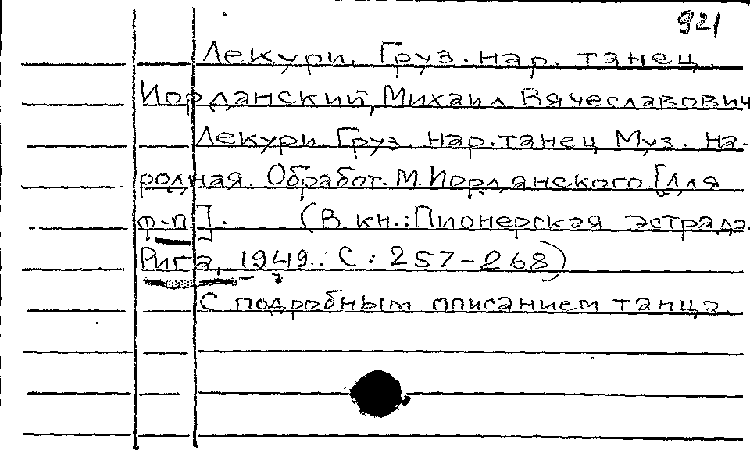 921
Лекури. Груз. нар. танец
Иорданский, Михаил Вячеславович
Лекури. Груз. нар. танец Муз. на-
родная. Обработ. М. Иорданского [для
ф-п].     (В кн.: Пионерская эстрада.
Рига, 1949. С. 257-268)
С подробным описанием танца.